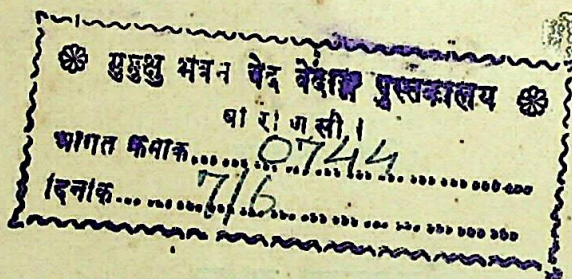 ❁ मुमुक्षु भवन वेद वेदाङ्ग पुस्तकालय ❁
वा रा ण सी ।
आगत क्रमाक......0744......
दिनांक......7/6......